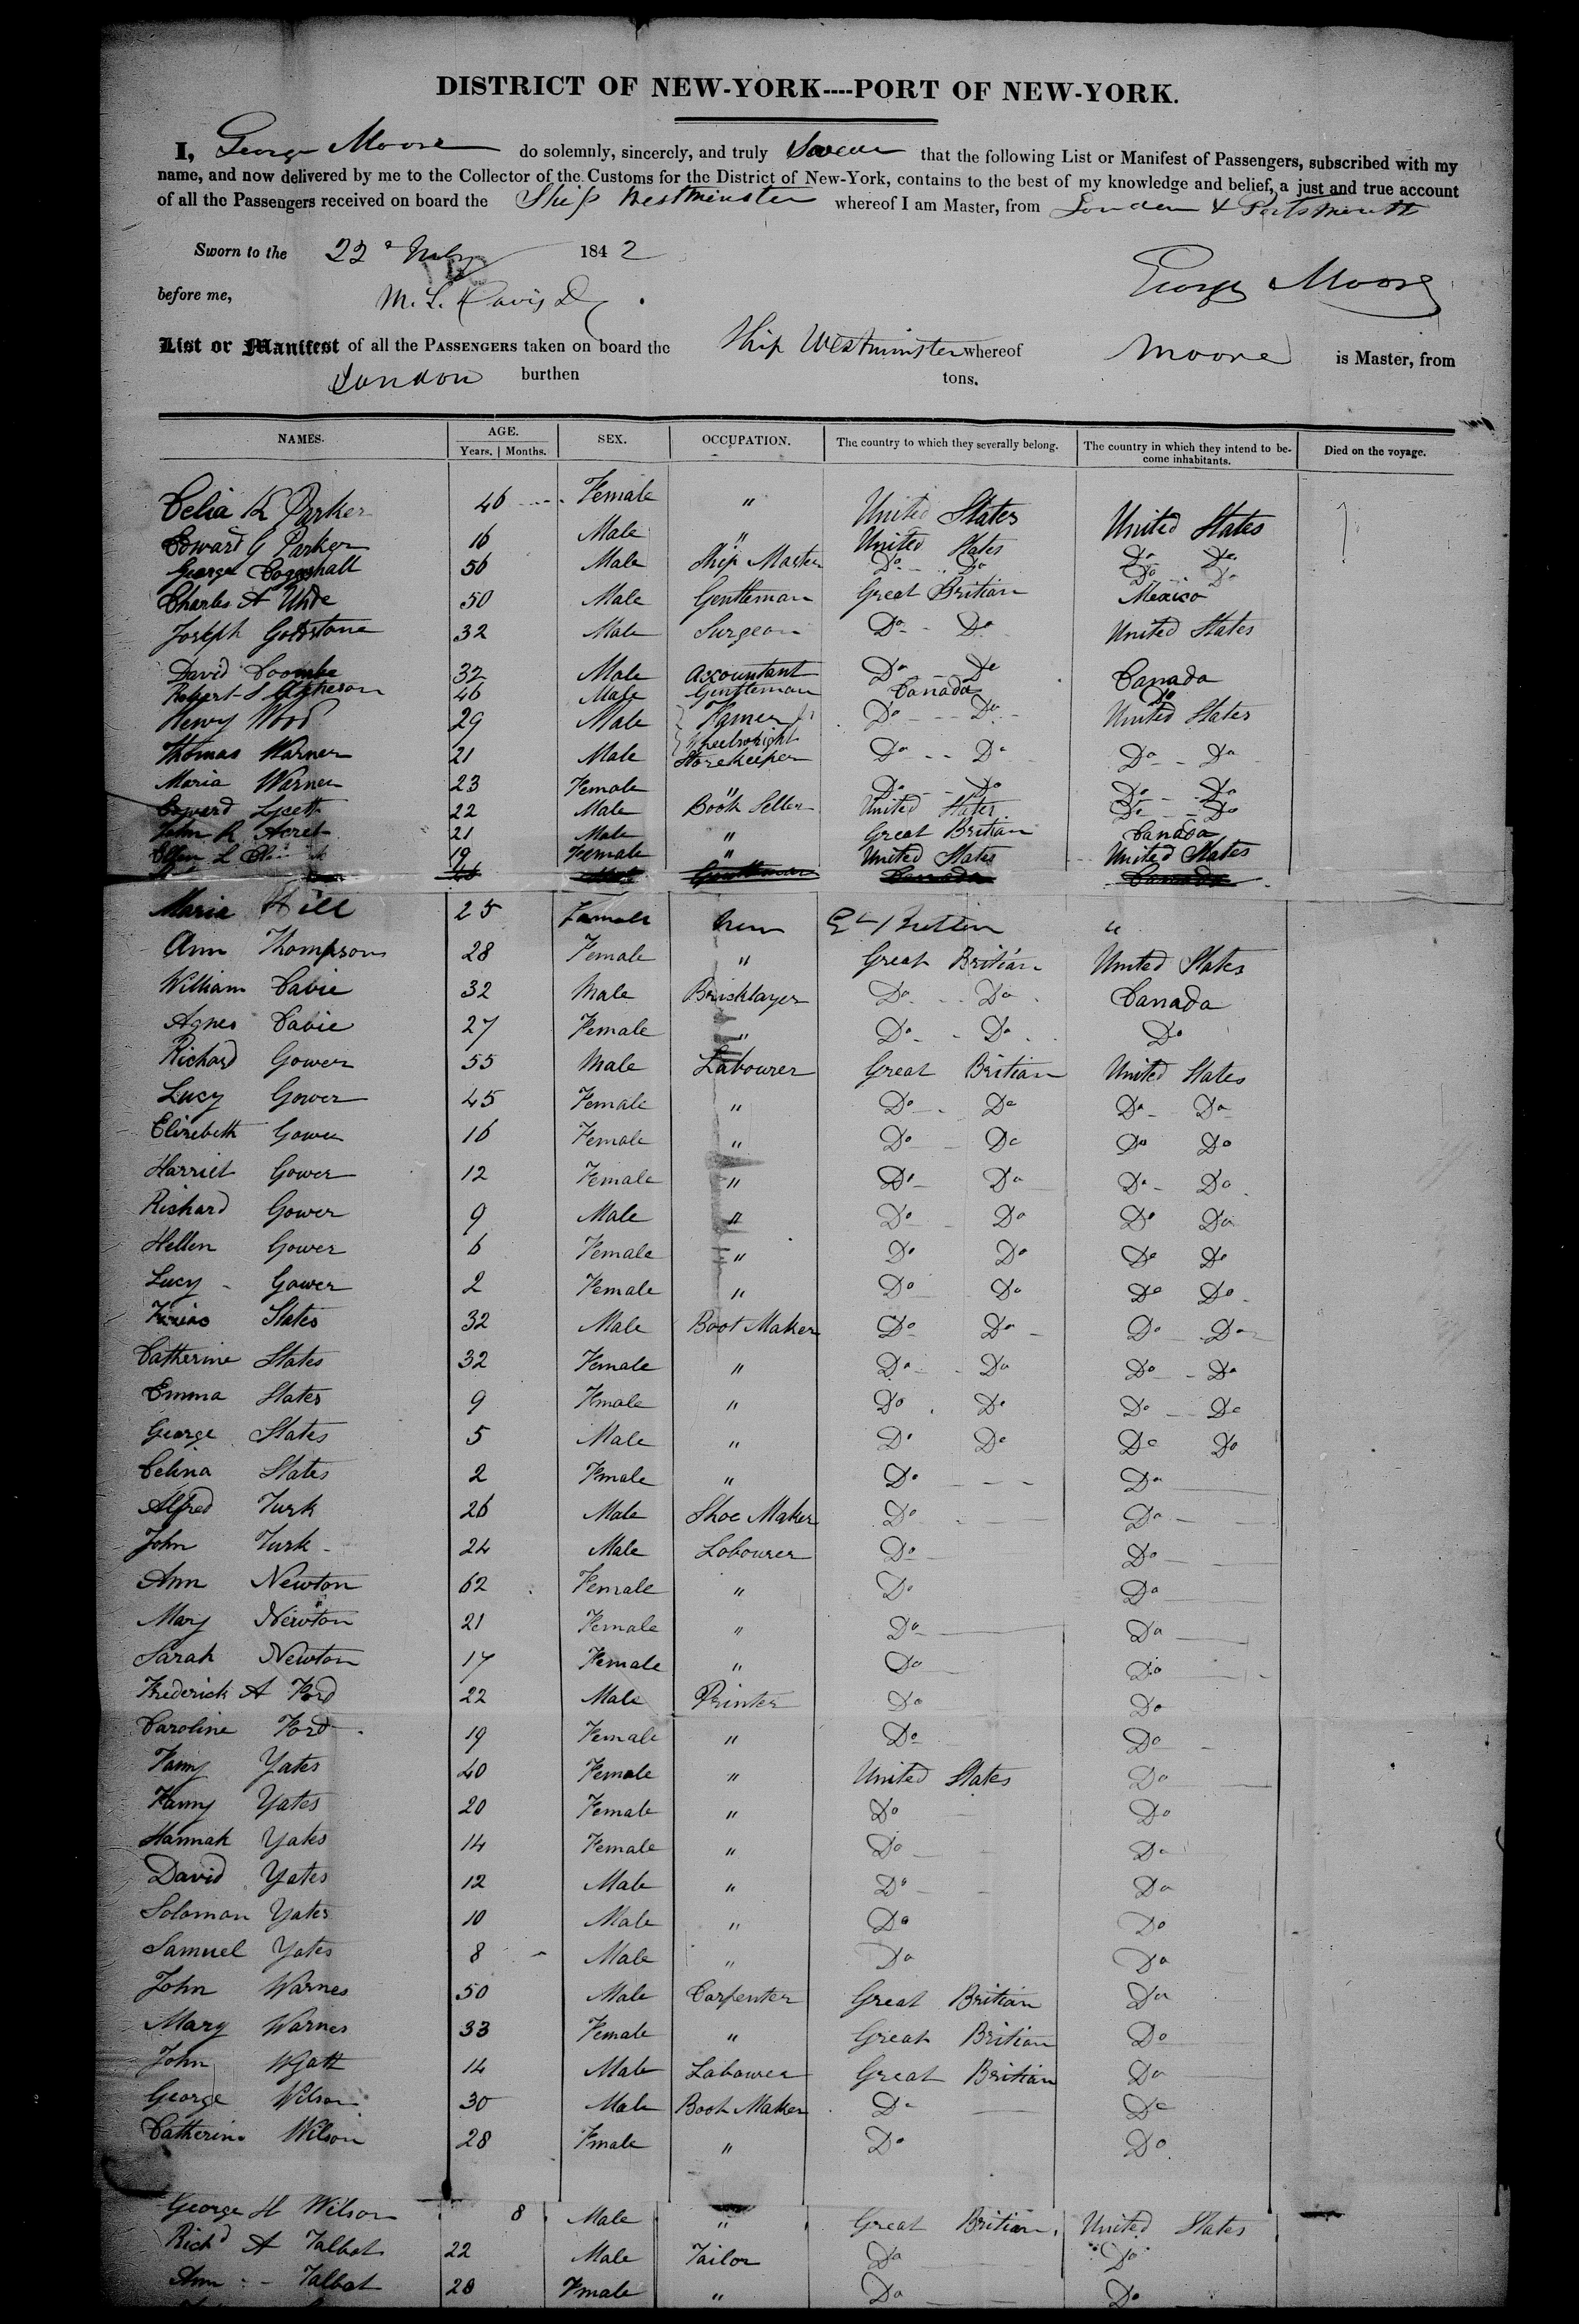 DISTRICT OF NEW-YORK----PORT OF NEW-YORK.
I, George Moore do solemnly, sincerely, and truly Swear that the following List or Manifest of Passengers, subscribed with my
name, and now delivered by me to the Collector of the Customs for the District of New-York, contains to the best of my knowledge and belief, a just and true account
of all the Passengers received on board the Ship Westminster whereof I am Master, from London & Portsmouth
Sworn to the 22d 1842
before me, M. L. Davis
George Moore
List or Manifest of all the PASSENGERS taken on board the Ship Westminster whereof Moore is Master, from
London burthen tons.
NAMES. AGE. SEX. OCCUPATION. The country to which they severally belong. The country in which they intend to be-
Years. | Months. come inhabitants. Died on the voyage.
Celia K Parker 46 Female " United States United States
Edward G Parker 16 Male " United States Do Do
George Coggeshall 56 Male Ship Master Do Do Do Do
Charles A Uhde 50 Male Gentleman Great Britian Mexico
Joseph Goldstone 32 Male Surgeon Do Do United States
David Coombe 32 Male Accountant Do Do Canada
Robert S 46 Male Gentleman Canada Do
Henry Wood 29 Male Farmer Do Do United States
Wheelwright
Thomas Warner 21 Male Storekeeper Do Do Do Do
Maria Warner 23 Female " Do Do Do Do
Edward Lycett 22 Male Book Seller United States Do Do
John R Acret 21 Male " Great Britian Canada
Ellen L 19 Female " United States United States
46 Male Gentleman Canada Canada
Maria Hill 25 Female Gt Britten "
Ann Thompson 28 Female " Great Britian United States
William Cavie 32 Male Bricklayer Do Do Canada
Agnes Cavie 27 Female " Do Do Do
Richard Gower 55 Male Labourer Great Britian United States
Lucy Gower 45 Female " Do Do Do Do
Elizebeth Gower 16 Female " Do Do Do Do
Harriet Gower 12 Female " Do Do Do Do
Richard Gower 9 Male " Do Do Do Do
Hellen Gower 6 Female " Do Do Do Do
Lucy Gower 2 Female " Do Do Do Do
States 32 Male Boot Maker Do Do Do Do
Catherine States 32 Female " Do Do Do Do
Emma States 9 Female " Do Do Do Do
George States 5 Male " Do Do Do Do
Celina States 2 Female " Do Do
Alfred Turk 26 Male Shoe Maker Do Do
John Turk 24 Male Labourer Do Do
Ann Newton 62 Female " Do Do
Mary Newton 21 Female " Do Do
Sarah Newton 17 Female " Do Do
Frederick A Ford 22 Male Printer Do Do
Caroline Ford 19 Female " Do Do
Fanny Yates 40 Female " United States Do
Fanny Yates 20 Female " Do Do
Hannah Yates 14 Female " Do Do
David Yates 12 Male " Do Do
Solomon Yates 10 Male " Do Do
Samuel Yates 8 Male " Do Do
John Warnes 50 Male Carpenter Great Britian Do
Mary Warnes 33 Female " Great Britian Do
John Wyatt 14 Male Labourer Great Britian Do
George Wilson 30 Male Boot Maker Do Do
Catherine Wilson 28 Fmale " Do Do
George H Wilson 8 Male " Great Britian United States
Richd A Talbot 22 Male Tailor Do Do
Ann Talbot 28 Fmale " Do Do